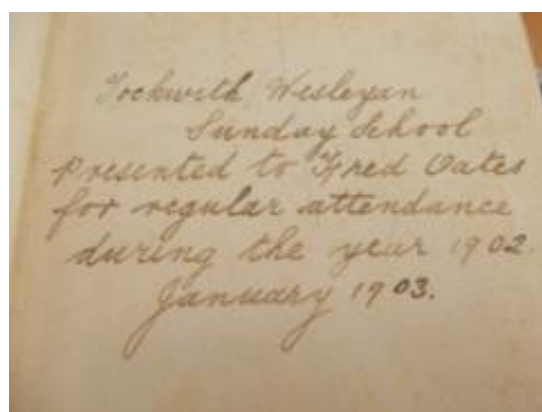 Tockwith Wesleyan
Sunday School
Presented to Fred Oates
for regular attendance
during the year 1902.
January 1903.